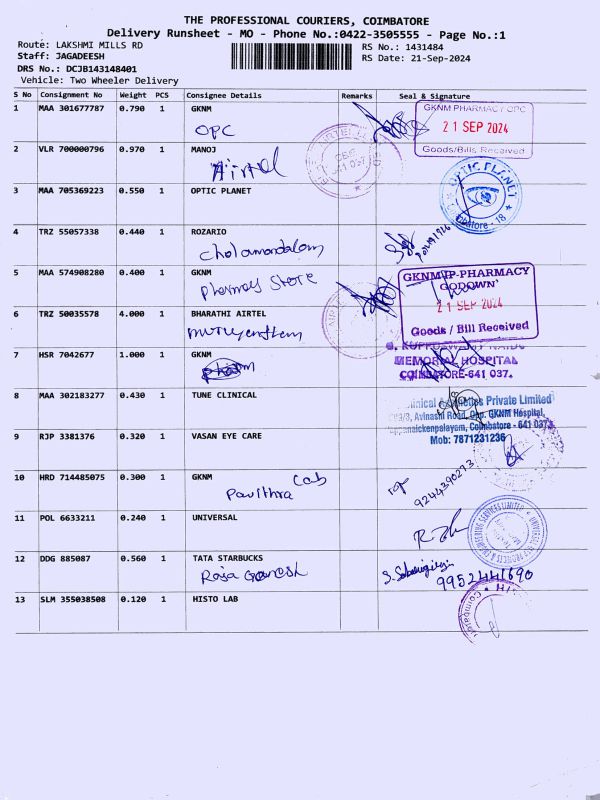 THE PROFESSIONAL COURIERS, COIMBATORE
Delivery Runsheet - MO - Phone No.:0422-3505555 - Page No.:1
Route: LAKSHMI MILLS RD
RS No.: 1431484
Staff: JAGADEESH
RS Date: 21-Sep-2024
DRS No.: DCJB143148401
Vehicle: Two Wheeler Delivery
S No Consignment No Weight PCS Consignee Details Remarks Seal & Signature
1 MAA 301677787 0.790 1 GKNM
OPC
GKNM PHARMACY OPC
21 SEP 2024
Goods/Bills Received
2 VLR 700000796 0.970 1 MANOJ
Airtel
3 MAA 705369223 0.550 1 OPTIC PLANET
OPTIC PLANET
4 TRZ 55057338 0.440 1 ROZARIO
Cholamandalam
5 MAA 574908280 0.400 1 GKNM
Pharmacy Store
GKNM IP-PHARMACY
GODOWN
21 SEP 2024
Goods / Bill Received
6 TRZ 50035578 4.000 1 BHARATHI AIRTEL
7 HSR 7042677 1.000 1 GKNM
MEMORIAL HOSPITAL
COIMBATORE-641 037.
8 MAA 302183277 0.430 1 TUNE CLINICAL
Private Limited
Avinashi Road, Opp. GKNM Hospital,
Coimbatore - 641 037.
Mob: 7871231236
9 RJP 3381376 0.320 1 VASAN EYE CARE
10 HRD 714485075 0.300 1 GKNM
Lab
Pavithra
9244390213
11 POL 6633211 0.240 1 UNIVERSAL
12 DDG 885087 0.560 1 TATA STARBUCKS
Raja Ganesh
9952441690
13 SLM 355038508 0.120 1 HISTO LAB